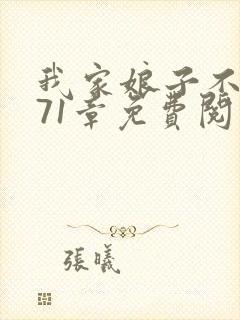 我家娘子不
71章免費閱
張曦